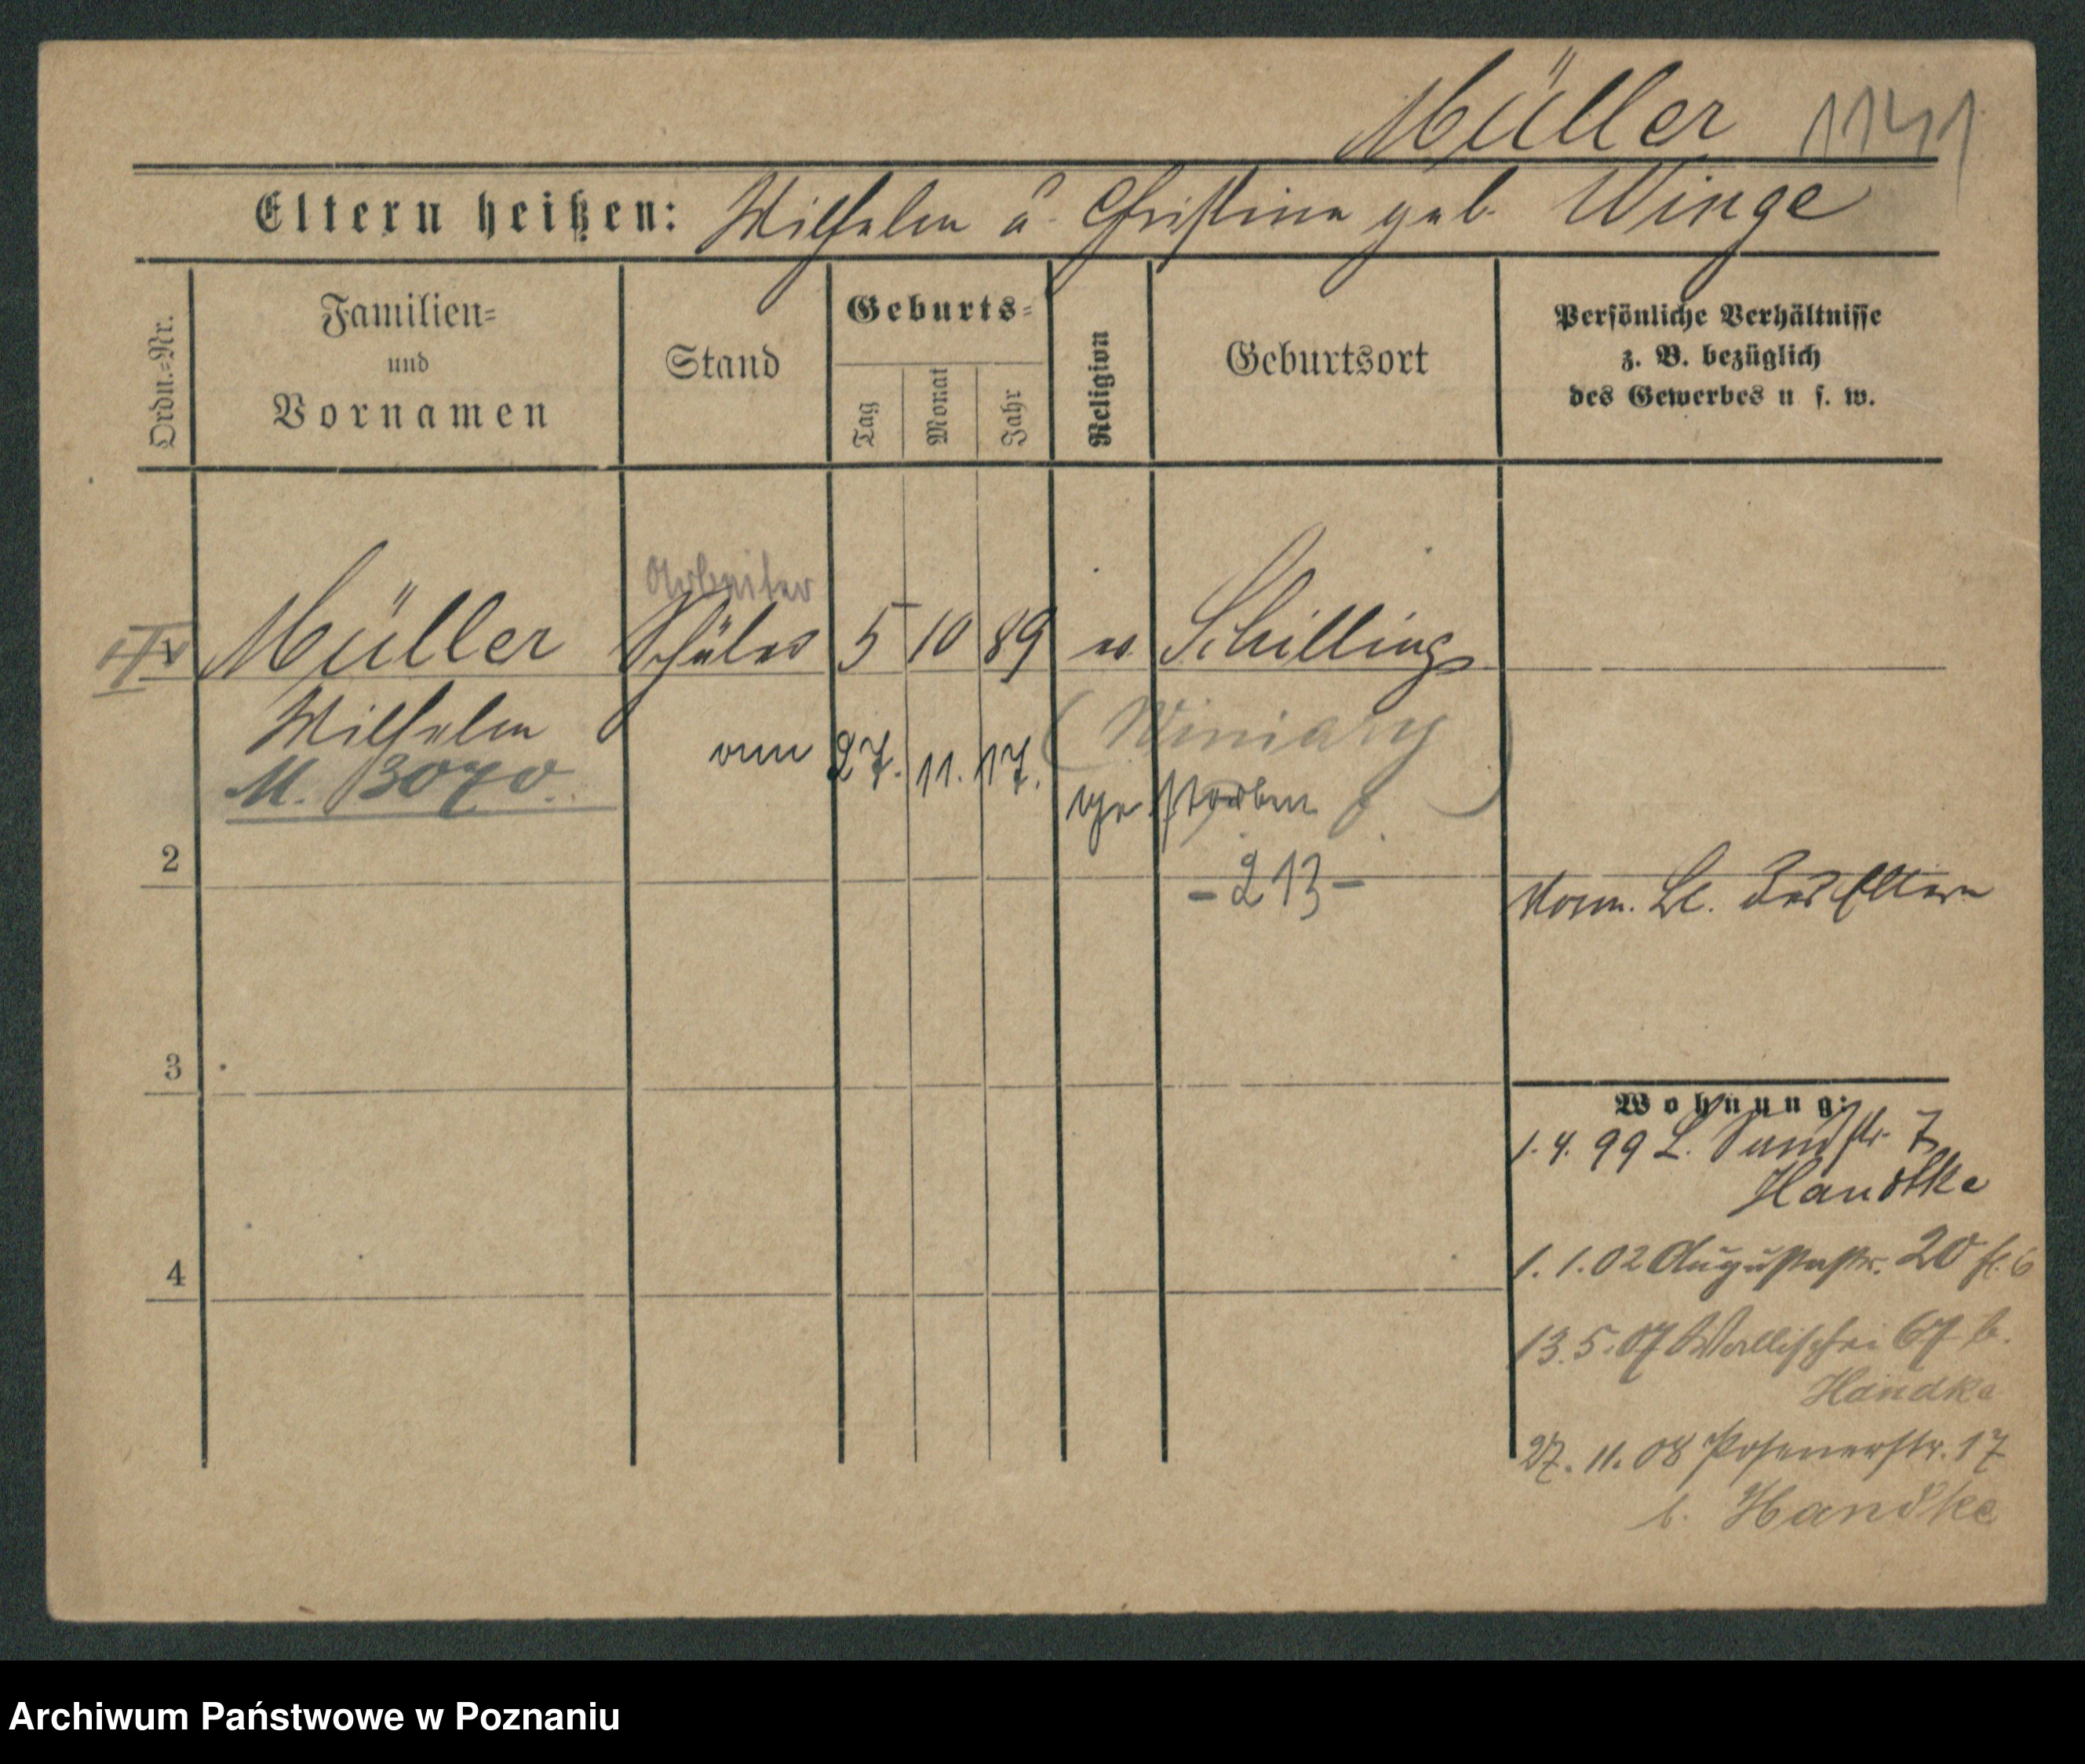 Müller 1141
Eltern heißen: Wilhelm u. Christine geb. Winge
Ordn.-Nr.
Familien=
und
Vornamen
Stand
Geburts=
Tag
Monat
Jahr
Religion
Geburtsort
Persönliche Verhältnisse
z. B. bezüglich
des Gewerbes u s. w.
Arbeiter
Müller Schüler 5 10 89 ev. Schilling
Wilhelm
(Winiary)
M. 3070.
am 27. 11. 17.
gestorben
- 213 -
2
Vorm. Bl. der Eltern
3
Wohnung:
1. 4. 99 L. Sandstr. 7
Handtke
4
1. 1. 02 Augustastr. 20 b. 6
13. 5. 07 Wallischei 67 b.
Handke
27. 11. 08 Posenerstr. 17
b. Handke
Archiwum Państwowe w Poznaniu